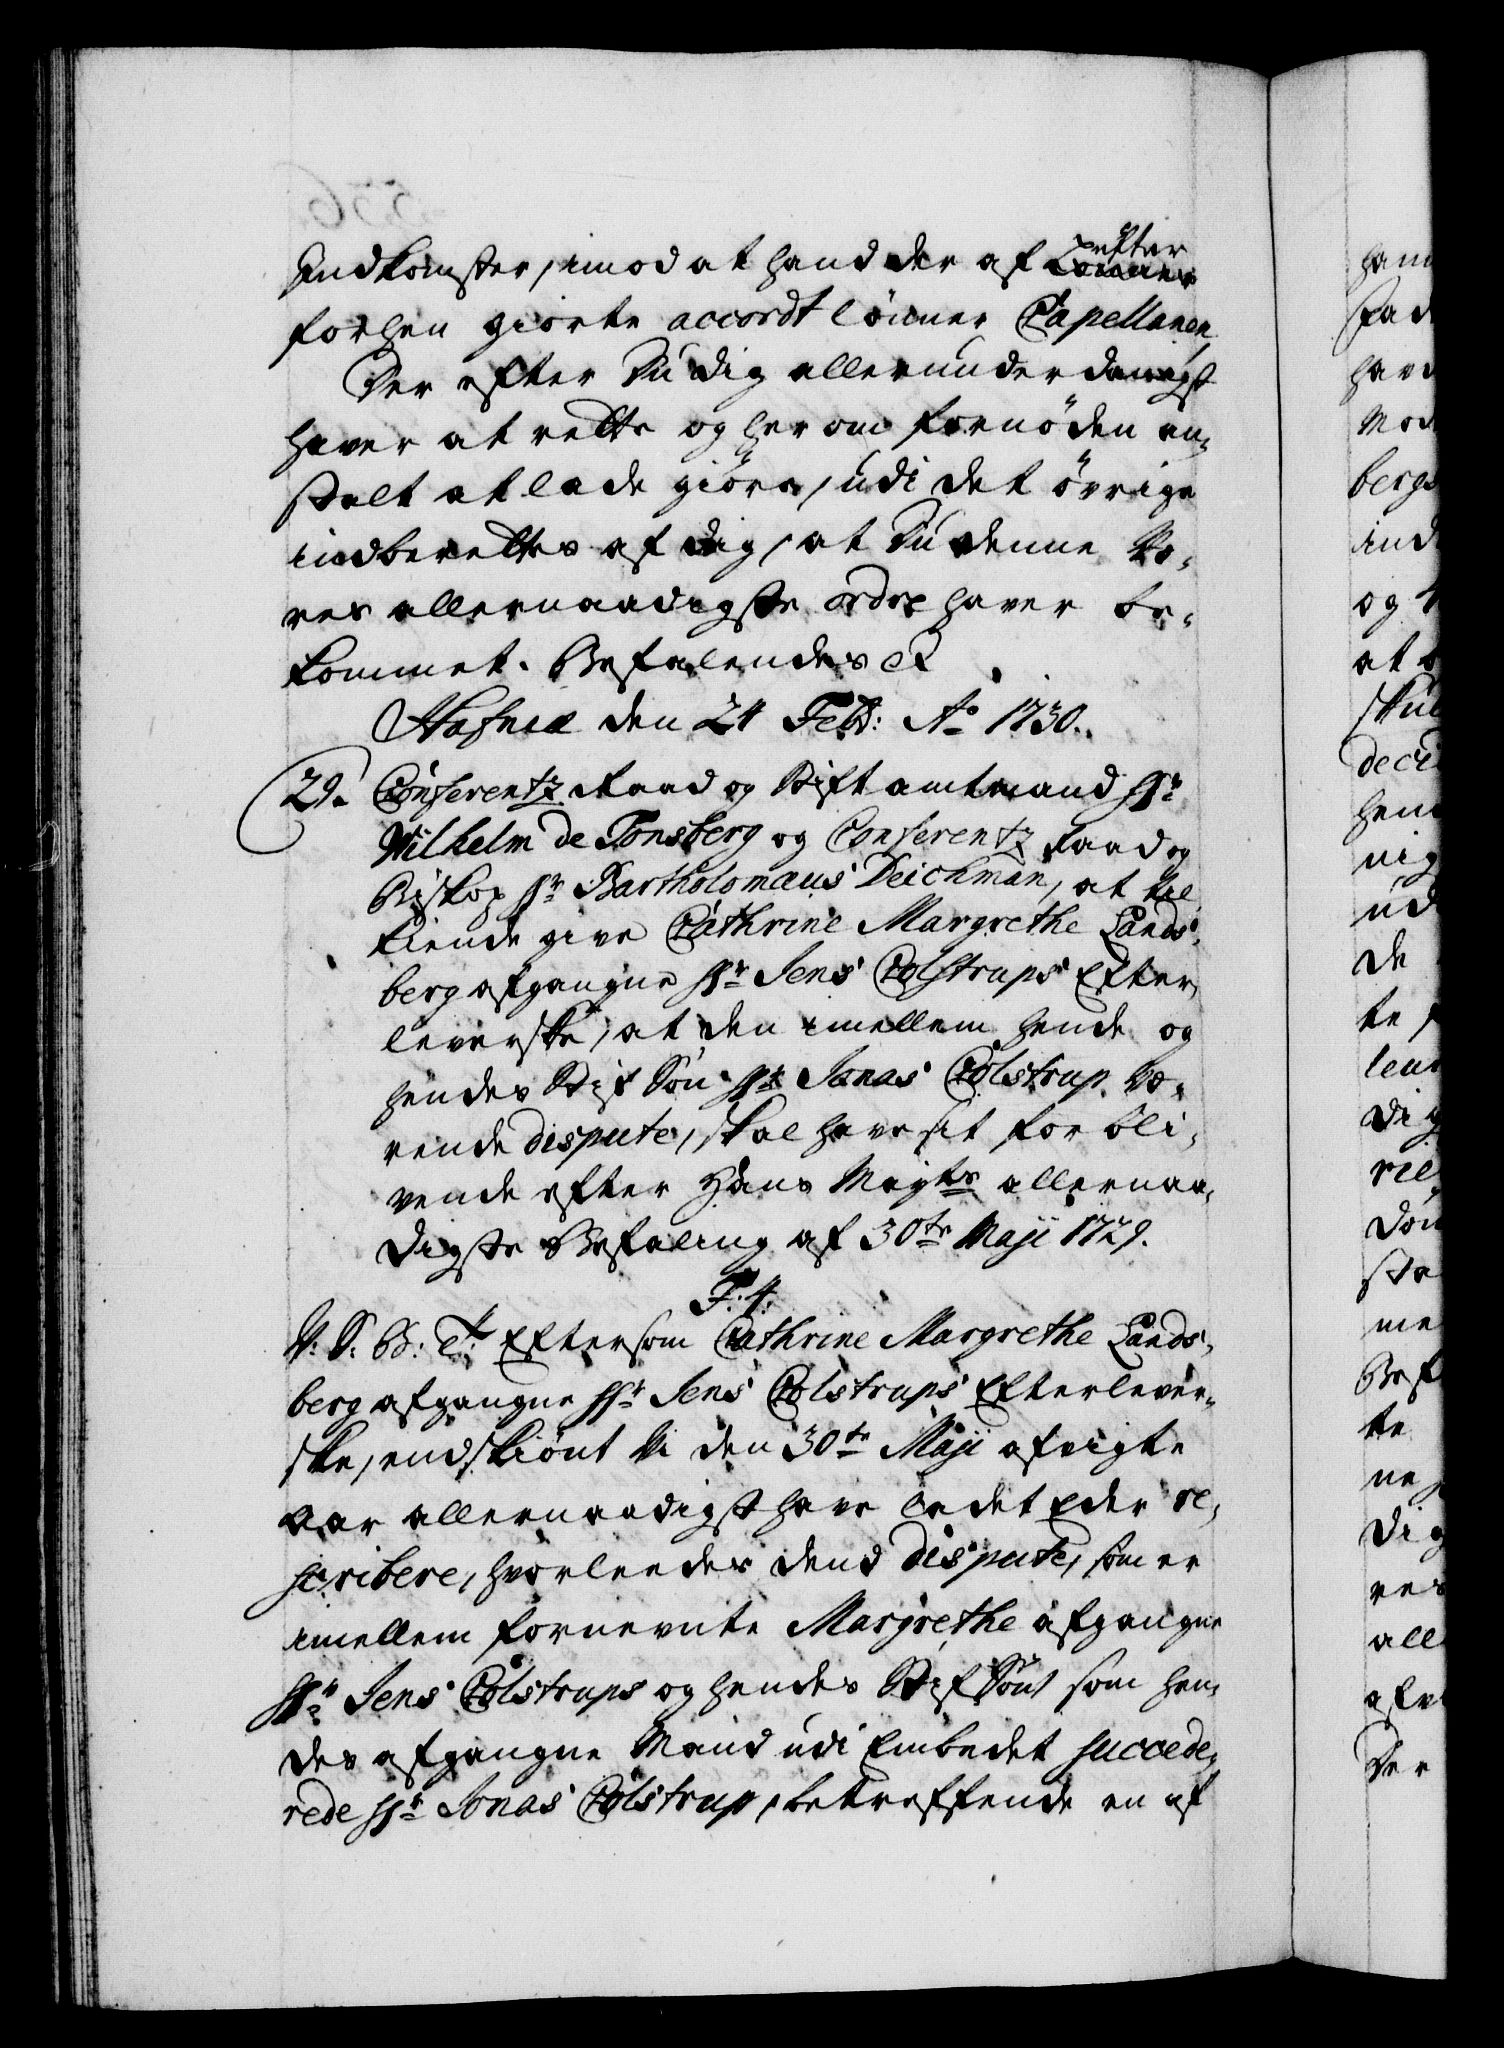 Indkomster, imod at hand der af efter
forhen giorte accordt lønner Capellanen
Der efter Du dig allerunderdanigst
haver at rette og her om fornøden an-
stalt at lade giøre, udi det øvrige
indberettes af dig, at Du denne Vo-
res allernaadigste ordre haver be-
kommet. Befalendes etc
Hafniæ den 24 Febr: Ao 1730.
29. Conferentz Raad og Stiftamtmand Hr
Wilhelm de Tonsberg og Conferentz Raad og
Biskop Hr Bartholomæus Deichman, at til
kiende give Cathrine Margrethe Lands-
berg afgangne Hr Jens Colstrups Efter
leverske, at den imellem hende og
hendes Stif Søn Hr Jonas Colstrup væ-
rende dispute, skal have sit for bli-
vende efter Hans Mayts allernaa-
digste Befaling af 30te Maji 1729.
F: 4:
V: S: G: T: Eftersom Cathrine Margrethe Lands-
berg afgangne Hr Jens Colstrups Efterlever-
ske, endskiønt Vi den 30te Maji afvigte
Aar allernaadigst have ladet Eder re-
scribere, hvorleedes dend dispute, som er
imellem fornevnte Margrethe afgangne
Hr Jens Colstrups og hendes Stif Søn som hen-
des afgangne Mand udi Embedet succede-
rede Hr Jonas Colstrup, betreffende en af